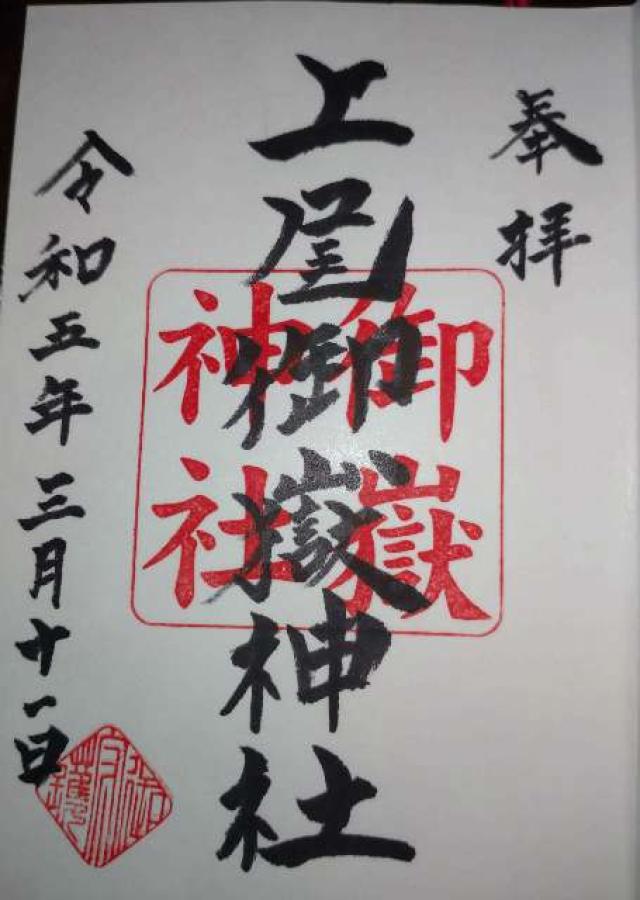 奉拝
上尾御嶽神社
御嶽
神社
令和五年三月十一日